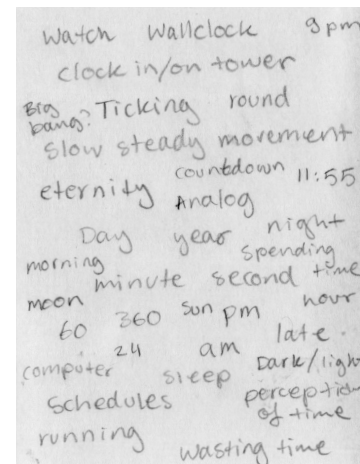 Watch Wallclock 9pm
clock in/on tower
Big bang? Ticking round
slow steady movement
countdown 11:55
eternity Analog
Day year night
morning spending
minute second time
moon
60 360 sun pm hour
24 am late
computer sleep Dark/light
schedules perception
of time
running
wasting time